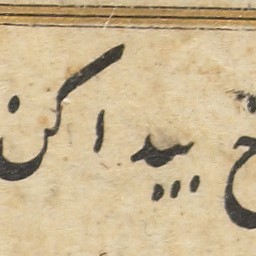 پیدا کن